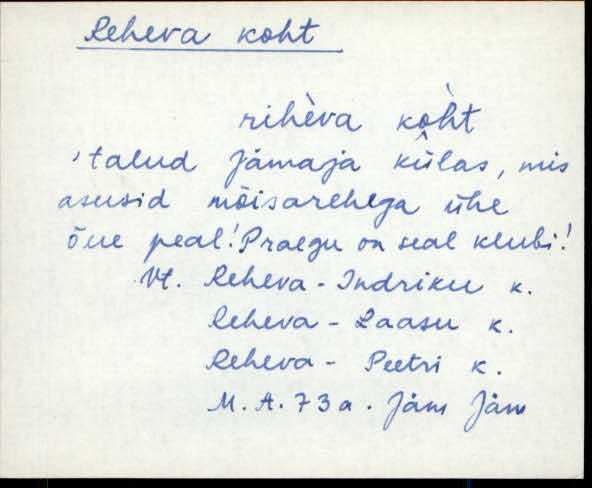 Reheva koht
rihèva kòht
'talud Jämaja külas, mis
asusid mõisarehega ühe
õue peal! Praegu on seal klubi!
Vt. Reheva - Indriku k.
Reheva - Laasu k.
Reheva - Peetri k.
M. A. 73 a. Jäm Jäm